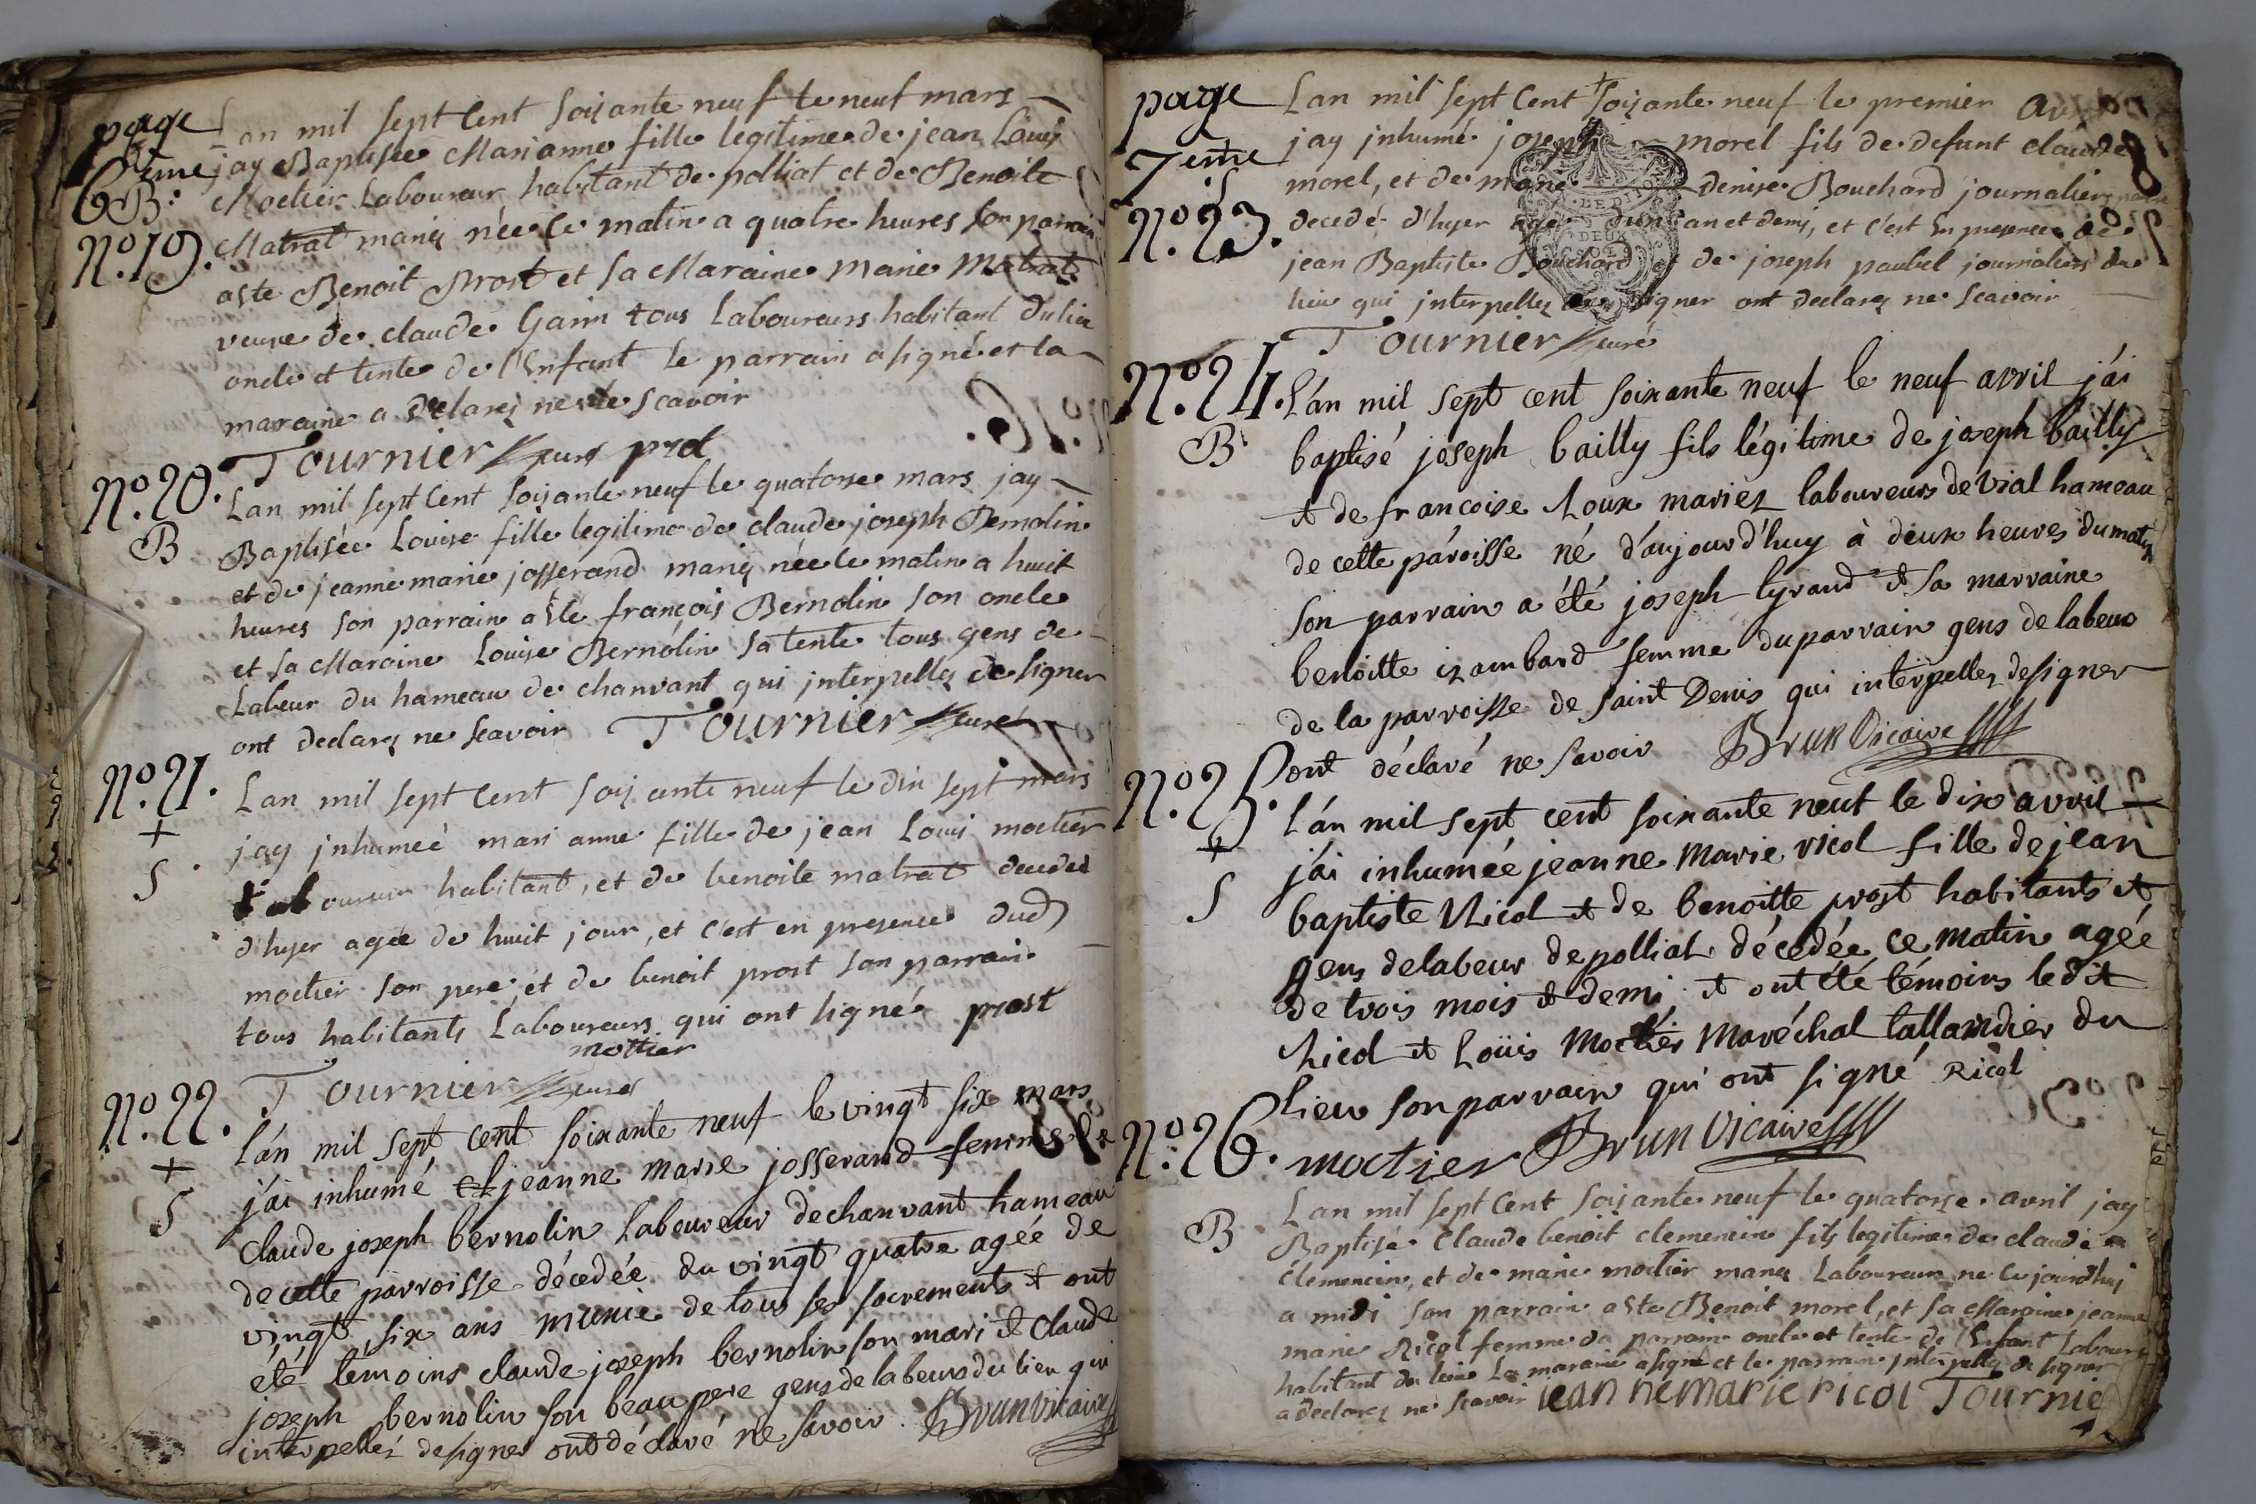 page
6eme
Lan mil sept Cent soizante neuf le neuf mars
jay Baptisée Marianne fille legitime de jean Louis
B.
Moctier Laboureur habitant de polliat et de Benoite
No. 19.
Matrat mariez née ce matin a quatre heures son parrain
aste Benoit Prost et sa Maraine Marie Matrat
veuve de claude Garin tous Laboureurs habitant du lieu
oncle et tente de l'Enfant le parrain a signé et la
maraine a declarez ne le scavoir
Tournier curé prot
No. 20.
Lan mil sept Cent soizante neuf le quatorse mars jay
B
Baptisée Louise fille legitime de claude joseph Bernolin
et de jeanne marie josserand mariez née le matin a huit
heures son parrain aste françois Bernolin son oncle
et sa Maraine Louise Bernolin sa tente tous gens de
Labeur du hameau de chanvant qui interpellez de signer
ont declarez ne scavoir Tournier curé
No. 21.
Lan mil sept Cent soizante neuf le dix sept mars
+
jay jnhumeé mari anne fille de jean Louis moctier
S
Laboureur habitant, et de benoite matrat decedeé
d'hyer agée de huit jour, et c'est en presence dud
moctier son pere et de benoit prost son parrain
tous habitants Laboureurs qui ont signé prost
mottier
Tournier curé
No. 22.
L'án mil sept cent soixante neuf le vingt six mars
+
j'ai inhumé jeanne marie josserand femme de
S
Claude joseph bernolin laboureur de chanvant hameau
de cette parroisse décedée du vingt quatre agée de
vingt six ans munie de tous ses sacrements & ont
été témoins claude joseph bernolin son mari & Claude
joseph bernolin son beau pere gens de labeur du lieu qui
interpellez de signer ont déclaré ne savoir. Brun Vicaire
page
7eme
Lan mil sept Cent soizante neuf le premier avril
jay jnhumé joseph morel fils de defunt claude
S
morel, et de marie denise Bouchard journaliers
No. 23.
decedé d'hyer agé d'un an et demi, et c'est En presence de
jean Baptiste Bouchard et de joseph paubel journaliers du
lieu qui jnterpellez de signer ont declarez ne scavoir
Tournier curé
No. 24.
L'án mil sept cent soixante neuf le neuf avril j'ái
B
baptisé joseph bailly fils légitime de joseph bailly
& de francoise Loux mariez laboureurs de Vial hameau
de cette pároisse né d'aujourd'huy à deux heures du matin
son parrain a été joseph tyrand & sa marraine
benoitte izambard femme du parrain gens de labeur
de la parroisse de saint Denis qui interpellez de signer
ont déclaré ne savoir Brun Vicaire
No. 25.
L'án mil sept cent soixante neuf le dix avril
+
j'ái inhumée jeanne Marie ricol fille de jean
S
baptiste Ricol & de benoitte prost habitants &
gens de labeur de polliat décedée ce matin agée
de trois mois & demi & ont été témoins ledit
Ricol & Loüis Moctier Maréchal tallandier du
Lieu son parrain qui ont signé Ricol
moctier Brun Vicaire
No. 26.
Lan mil sept Cent soizante neuf le quatorse avril jay
B
Baptisé Claude benoit clemencin fils legitime de claude
Clemencin, et de marie moctier mariez Laboureurs ne ce jourdhuj
a midi son parrain aste Benoit morel, et sa Maraine jeanne
marie Ricol femme du parrain oncle et tente de l'Enfant Laboureurs
habitant du lieu La maraine a signé et le parrain jnterpellez de signer
a declarez ne scavoir jean ne marie ricol Tournier